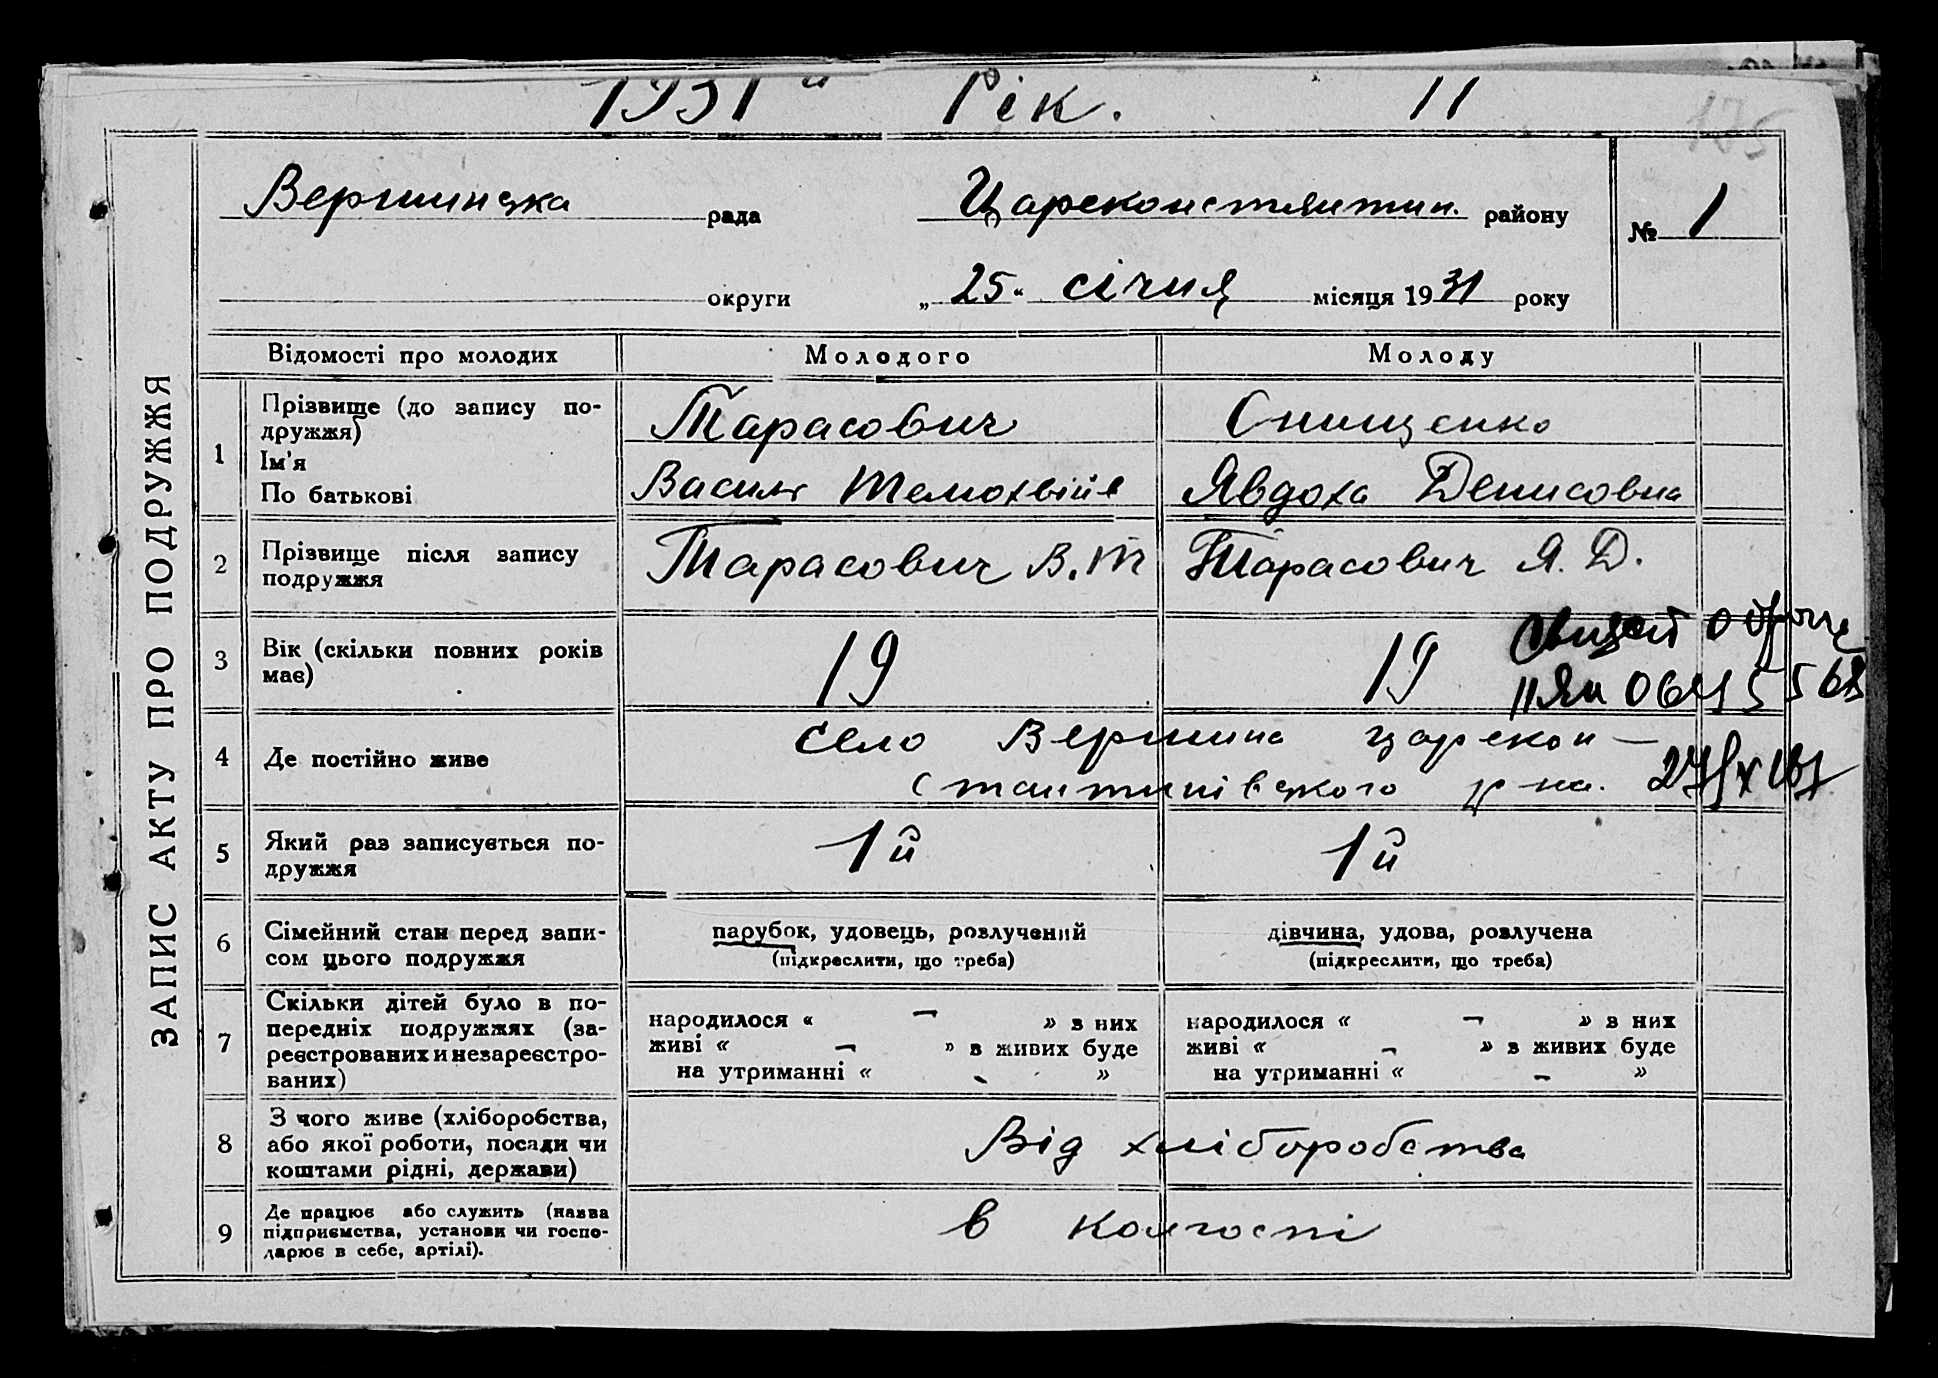 1931й Рік. 11
175
ЗАПИС АКТУ ПРО ПОДРУЖЖЯ
Вершинська рада Цареконстянтин. району № 1
округи „25“ січня місяця 1931 року
Відомості про молодих Молодого Молоду
1 Прізвище (до запису по-
дружжя) Тарасович Онищенко
Ім'я
По батькові Василь Темохвійв Явдоха Денисовна
2 Прізвище після запису
подружжя Тарасович В. Т Тарасович Я. Д.
3 Вік (скільки повних років
має) 19 19
4 Де постійно живе село Вершина царекон-
стантинівського р-на.
5 Який раз записується по-
дружжя 1й 1й
6 Сімейний стан перед запи-
сом цього подружжя парубок, удовець, розлучений
(підкреслити, що треба) дівчина, удова, розлучена
(підкреслити, що треба)
7 Скільки дітей було в по-
передніх подружжях (за-
реєстрованих и незареєстро-
ваних) народилося « – » з них
живі « – » в живих буде
на утриманні « - » народилося « – » з них
живі « – » в живих буде
на утриманні « – »
8 З чого живе (хліборобства,
або якої роботи, посади чи
коштами рідні, держави) Від хліборобства
9 Де працює або служить (назва
підприємства, установи чи госпо-
дарює в себе, артілі). в колгоспі